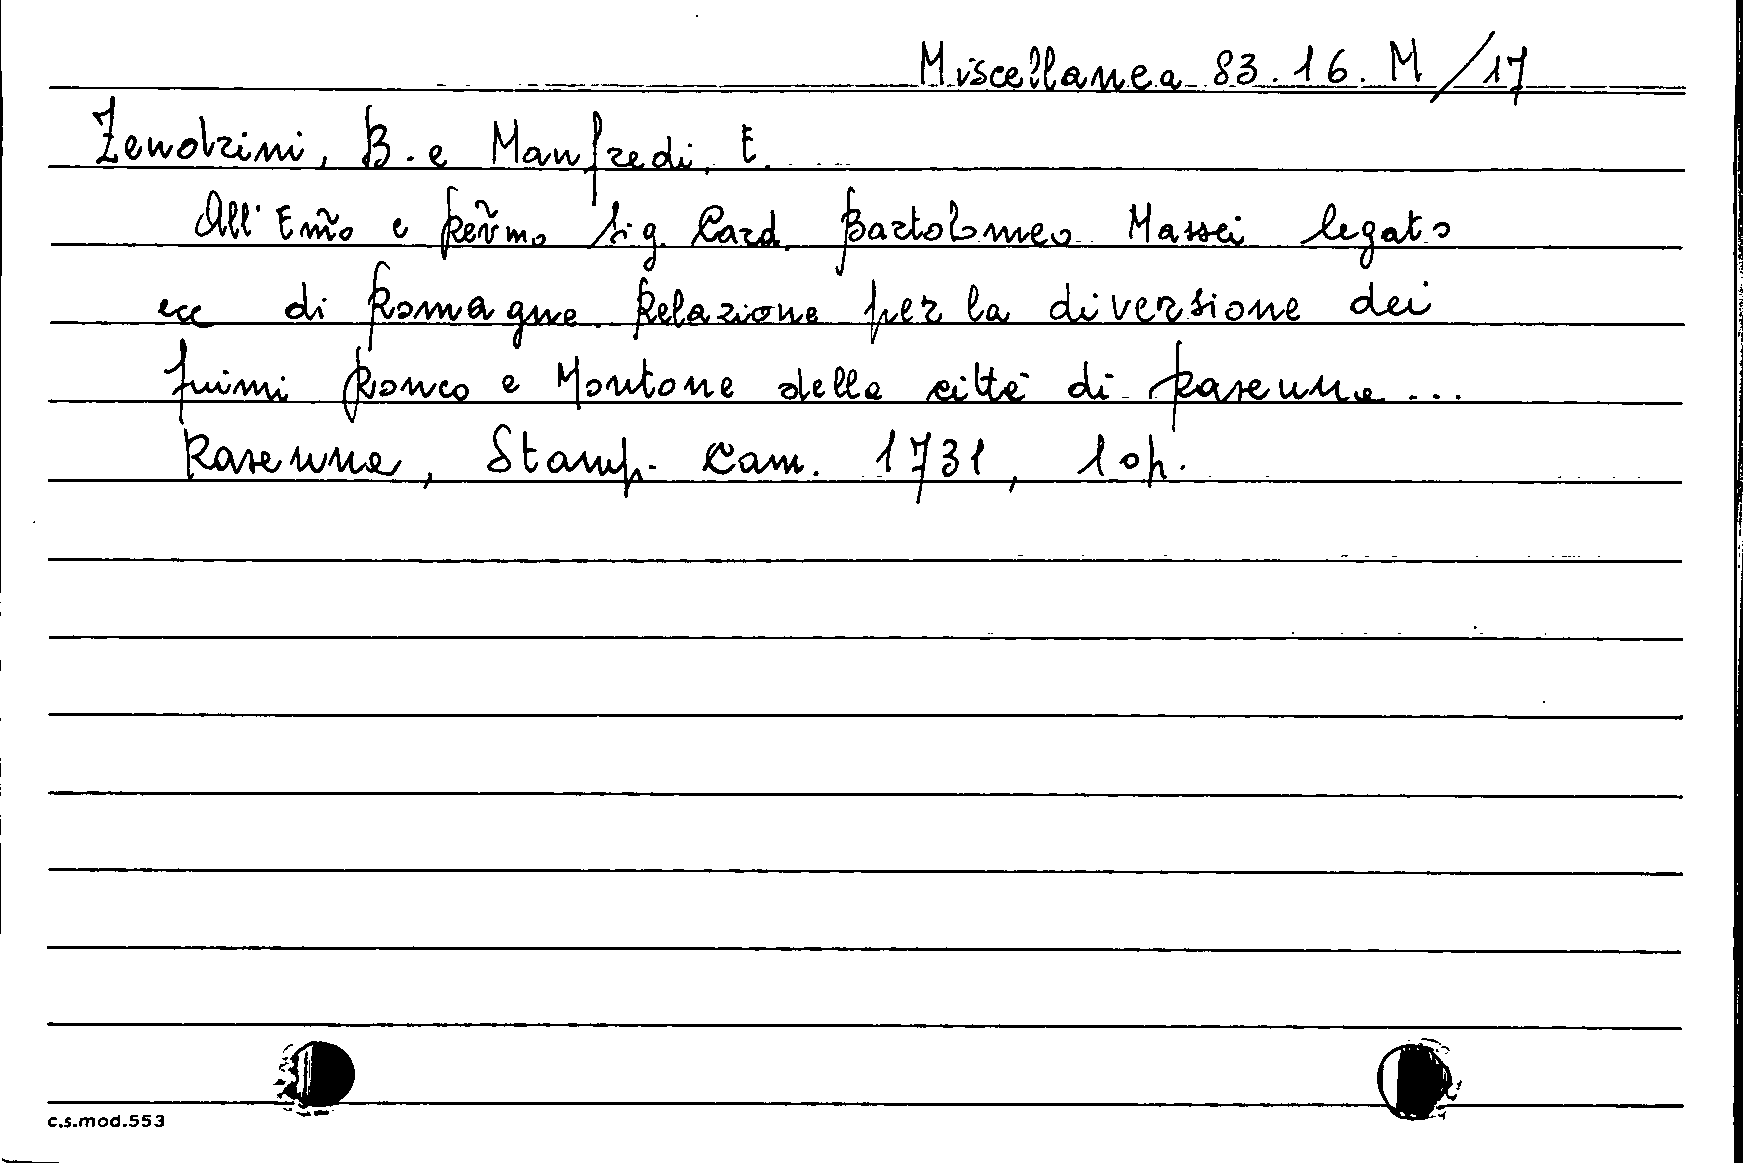 Miscellanea 83.16.M/17
Zendrini, B. e Manfredi, E.
All' Em̃o e Reṽmo Sig. Card. Bartolomeo Massei legato
ecc di Romagna. Relazione per la diversione dei
fuimi Ronco e Montone della città di Ravenna...
Ravenna, Stamp. Cam. 1731, 10p.
c.s.mod.553